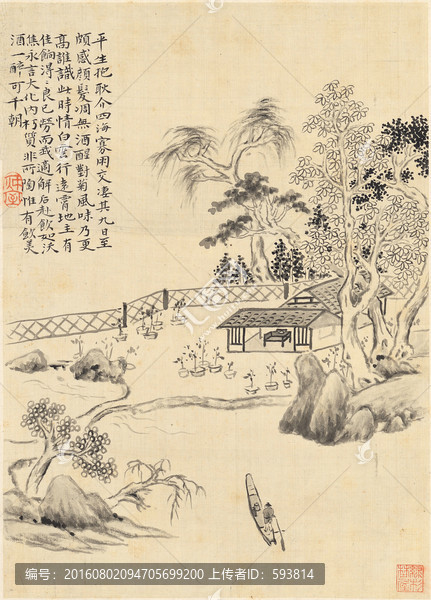 平生抱耿介四海寡朋交淒其九日至
頗感顏髮凋無酒醒對菊風味乃更
高誰識此時情白雲行遠霄地主有
佳餉得〻良已勞而我適解后赴飲如沃
焦永言大化內朽質非所陶惟有飲美
酒一醉可千朝
编号：20160802094705699200 上传者ID：593814